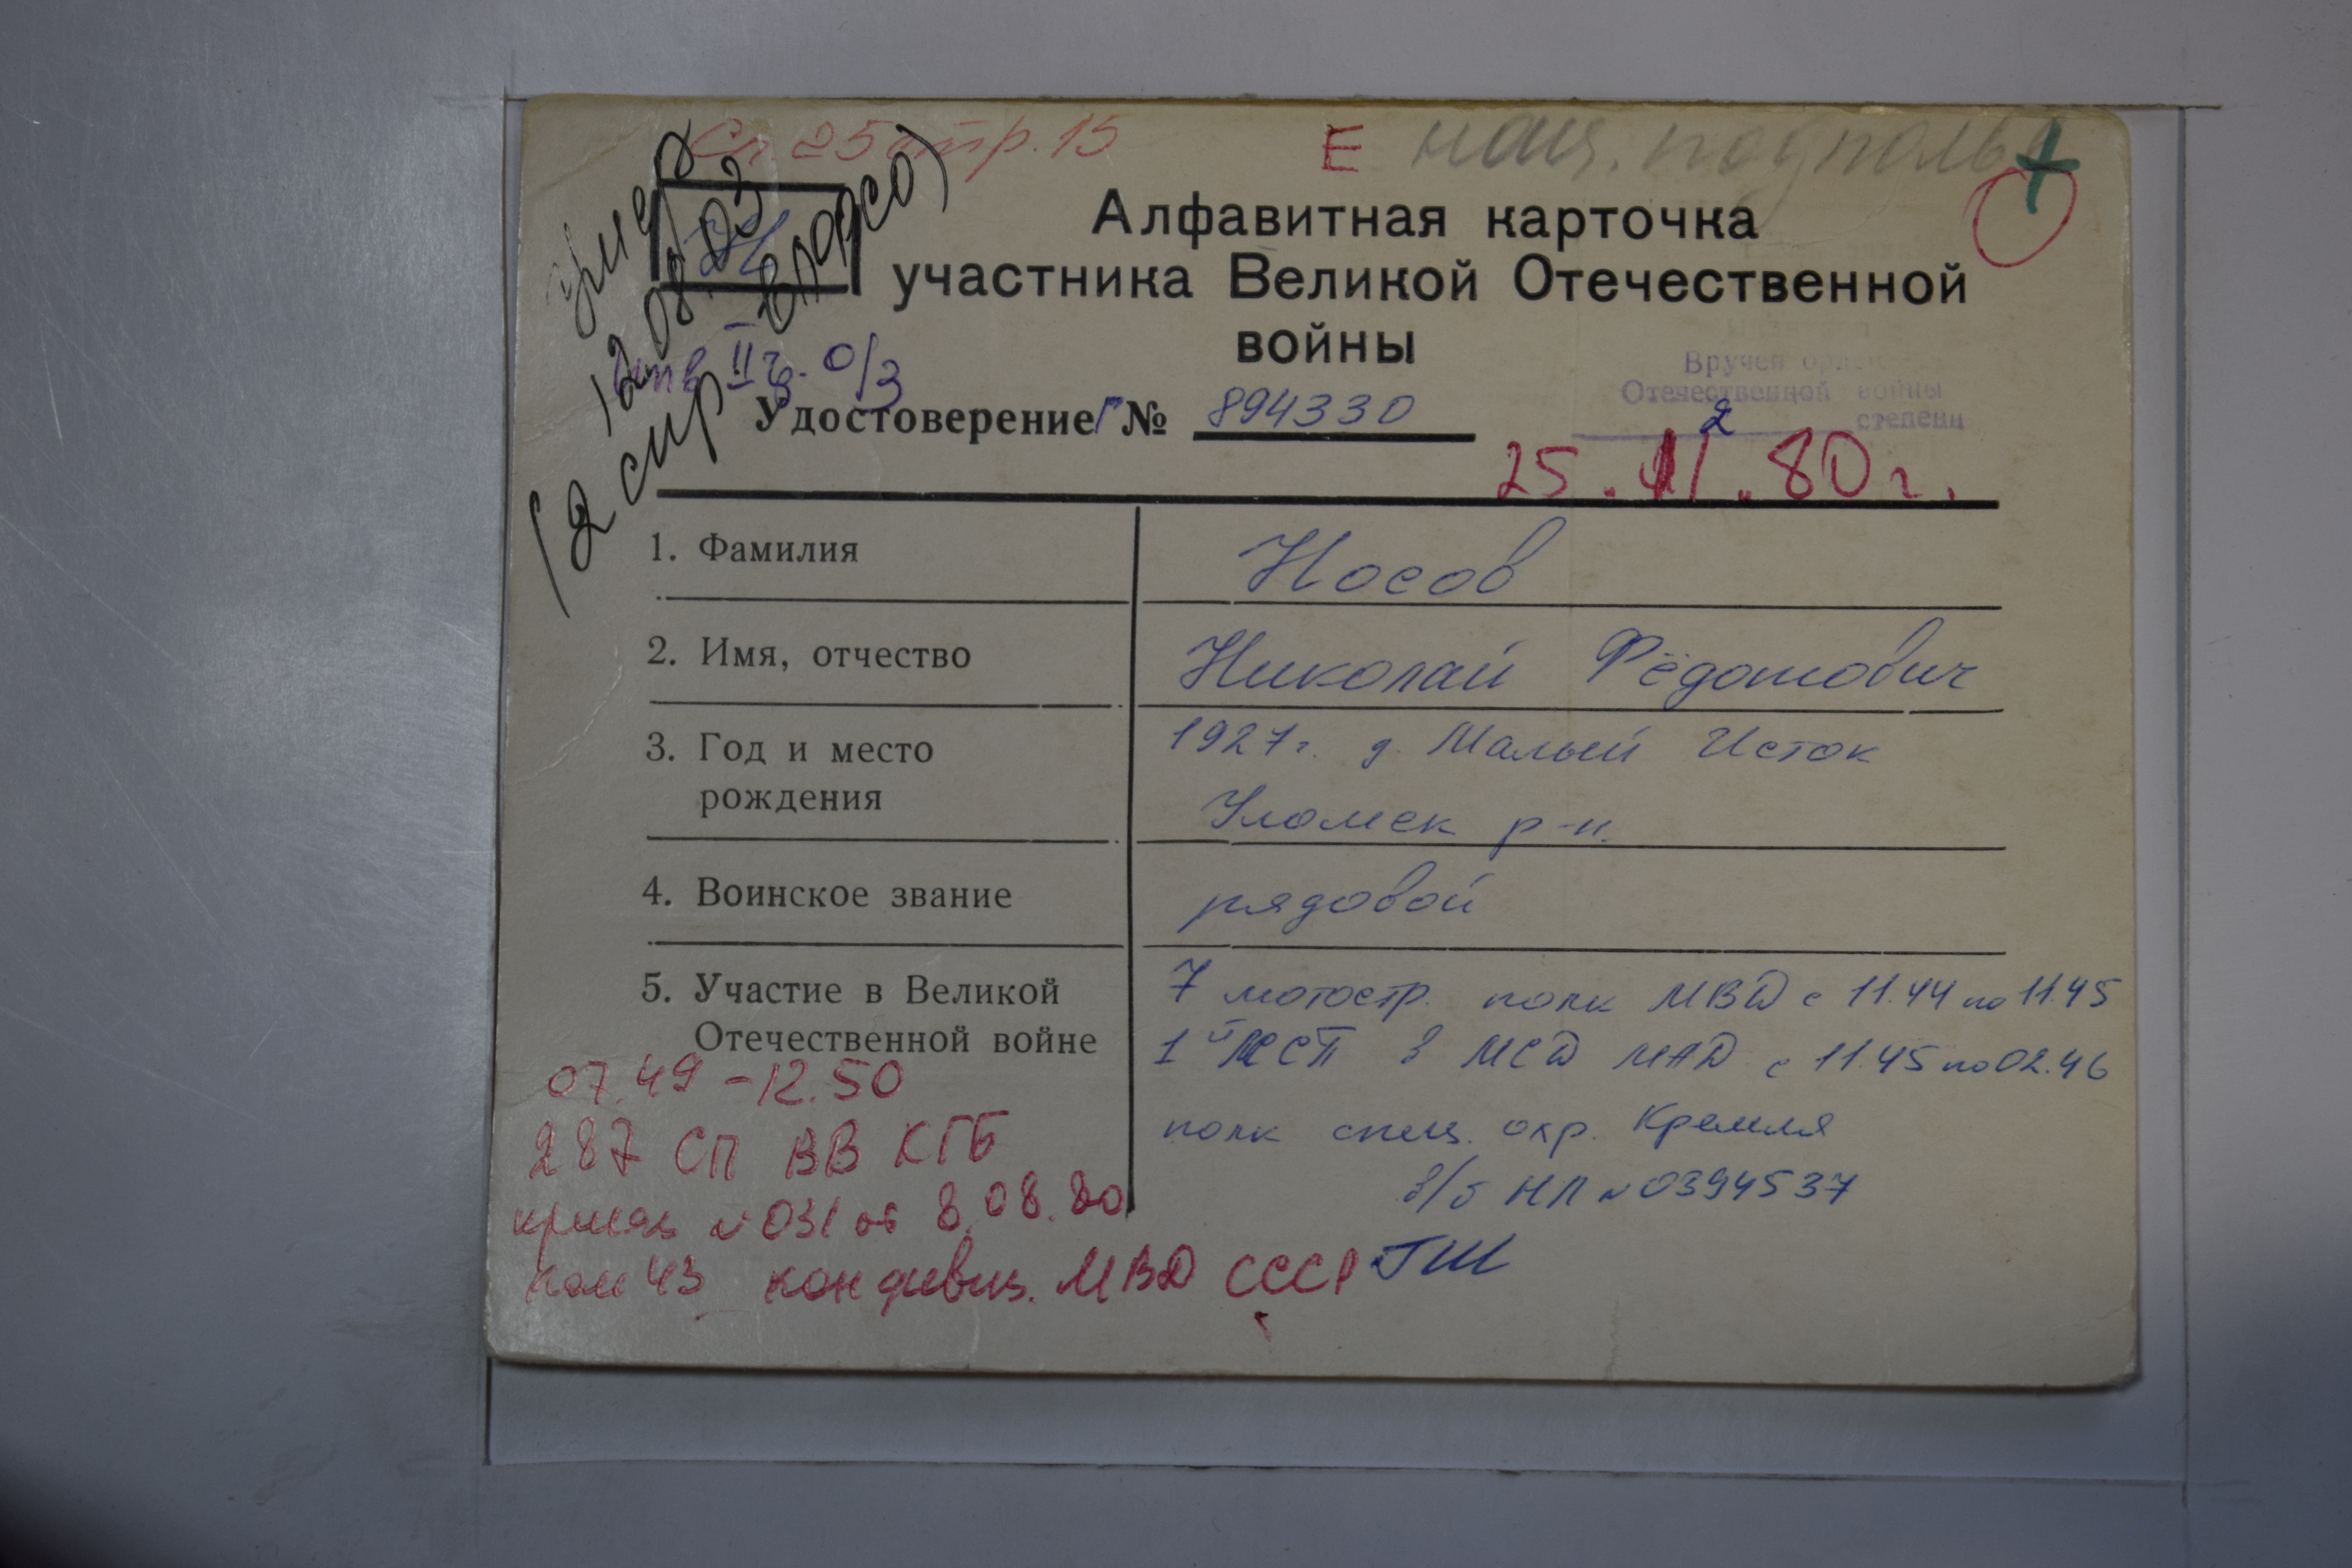 Сп 25 стр. 15
Е нац. подполье
12 08. 03
Алфавитная карточка
участника Великой Отечественной
войны
Вручен орден
Отечественной войны
2 степени
II г. 0/3
Удостоверение Г № 894330
25.11.80 г.
1. Фамилия Носов
2. Имя, отчество Николай Фёдотович
3. Год и место 1927г. д. Малый Исток
рождения Уломск р-н.
4. Воинское звание рядовой
5. Участие в Великой 7 мотостр. полк МВД с 11.44 по 11.45
Отечественной войне 1 СП МСД с 11.45 по 02.46
полк спец. охр. Кремля
в/б НП № 0394537
07.49 - 12.50
287 СП ВВ КГБ
приказ № 031 от 8.08.80
43 МВД СССР ГШ